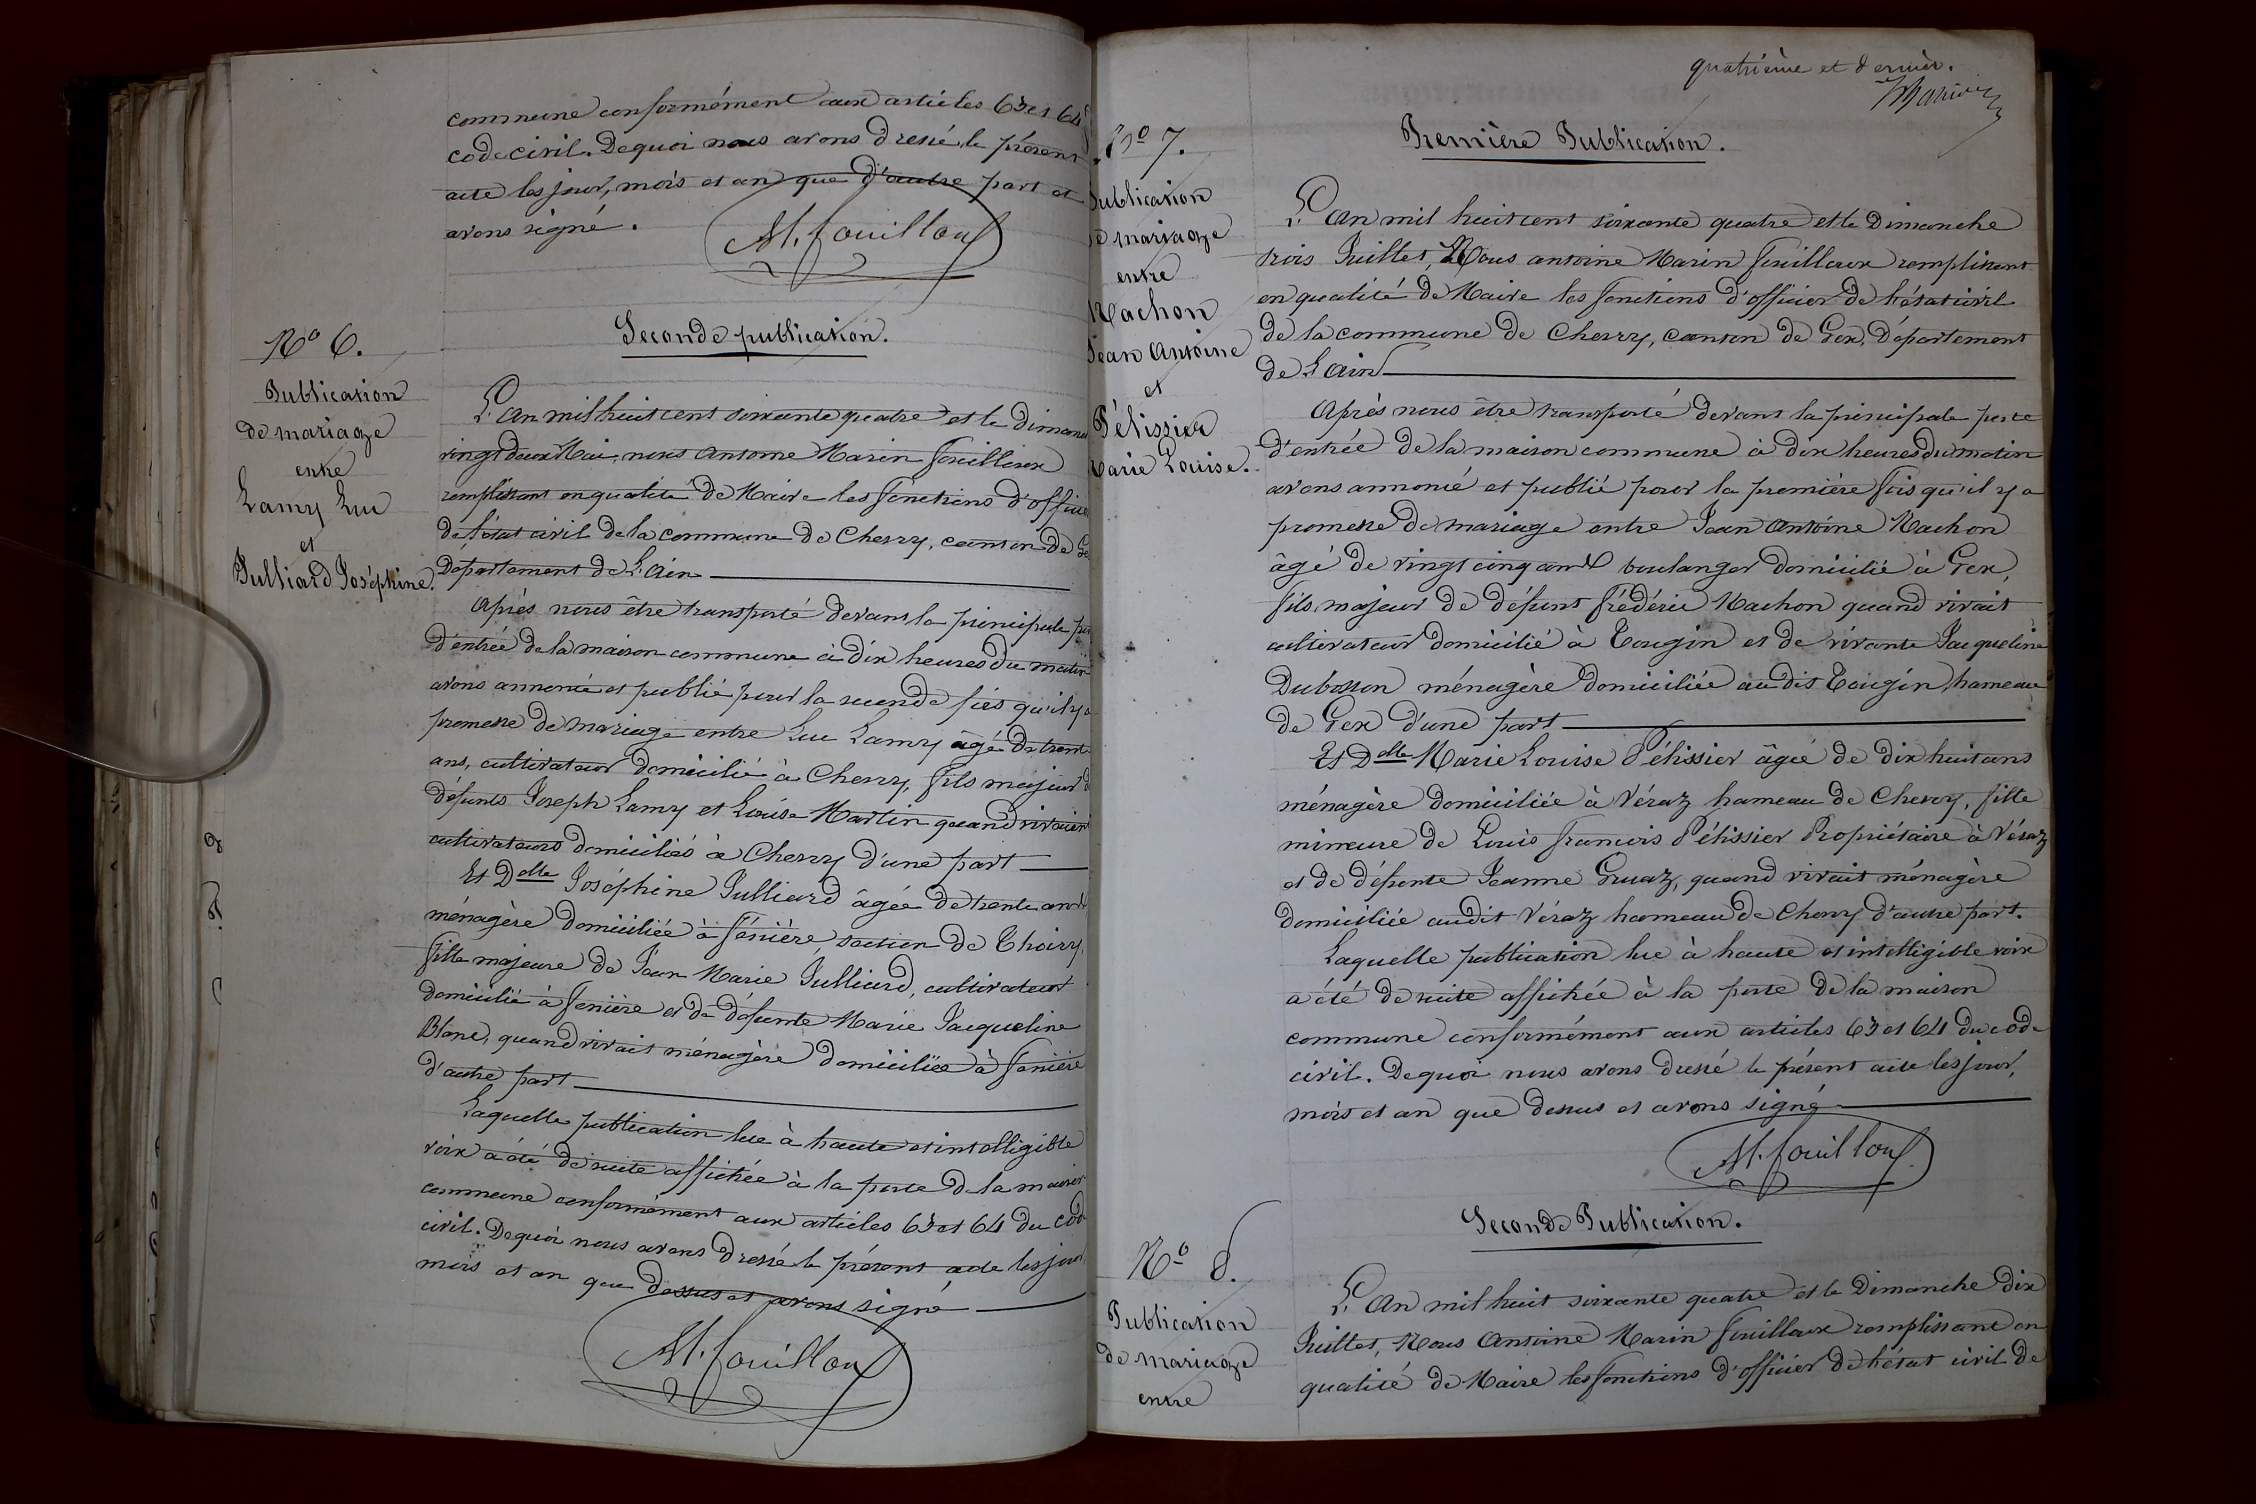 commune conformément aux articles 63 et 64
code civil. De quoi nous avons dressé le présent
acte les jour, mois et an que d'autre part et
avons signé.
M. fouilloux
Seconde publication.
No 6.
Publication
de mariage
entre
Lamy Luc
et
Julliard Joséphine.
L'An mil huit cent soixante quatre et le dimanc
vingt deux Mai, nous Antoine Marin fouilloux
remplissant en qualité de Maire les fonctions d'officie
de l'état civil de la commune de Chevry, canton de Ge
Département de L'Ain
Après nous être transporté devant la principale por
d'entrée de la maison commune à dix heures du matin
avons annoncé et publié pour la seconde fois qu'il y a
promesse de mariage entre Luc Lamy âgé de trente
ans, cultivateur domicilié à Chevry, fils majeur d
défunts Joseph Lamy et Louise Martin quand vivaient
cultivateurs domiciliés à Chevry d'une part
Et Delle Joséphine Julliard âgée de trente ans
ménagère domiciliée à fénière section de Thoiry,
fille majeure de Jean Marie Julliard, cultivateur
domicilié à fenière et de défunte Marie Jacqueline
Blanc, quand vivait ménagère domiciliée à fenière
d'autre part
Laquelle publication lue à haute et intelligible
voix a été de suite affichée à la porte de la maison
commune conformément aux articles 63 et 64 du cod
civil. De quoi nous avons dressé le présent acte les jour
mois et an que dessus et avons signé
M. fouilloux
quatrième et dernier.
Première Publication.
No 7.
Publication
de mariage
entre
Machon
Jean Antoine
et
Pélissier
Marie Louise.
L'An mil huit cent soixante quatre et le Dimanche
trois Juillet, Nous antoine Marin fouilloux remplissant
en qualité de Maire les fonctions d'officier de l'état civil
de la commune de Chevry, canton de Gex, Département
de L'Ain
Après nous être transporté devant la principale porte
d'entrée de la maison commune à dix heures du matin
avons annoncé et publié pour la première fois qu'il y a
promesse de mariage entre Jean Antoine Machon
âgé de vingt cinq ans boulanger domicilié à Gex,
fils majeur de défunt frédéric Machon quand vivait
cultivateur domicilié à Tougin et de vivante Jacqueline
Dubosson ménagère domiciliée au dit Tougin hameau
de Gex d'une part
Et Delle Marie Louise Pélissier âgée de dix huit ans
ménagère domiciliée à Véraz hameau de Chevry, fille
mineure de Louis francois Pélissier Propriétaire à Véraz
et de défunte Jeanne Gruaz, quand vivait ménagère
domiciliée audit Véraz hameau de Chevry d'autre part.
Laquelle publication lue à haute et intelligible voix
a été de suite affichée à la porte de la maison
commune conformément aux articles 63 et 64 du code
civil. De quoi nous avons dressé le présent acte les jour,
mois et an que dessus et avons signé
M. fouilloux
Seconde Publication.
No 8.
Publication
de mariage
entre
L'An mil huit soixante quatre et le Dimanche dix
Juillet, Nous Antoine Marin fouilloux remplissant en
qualité de Maire les fonctions d'officier de l'état civil de